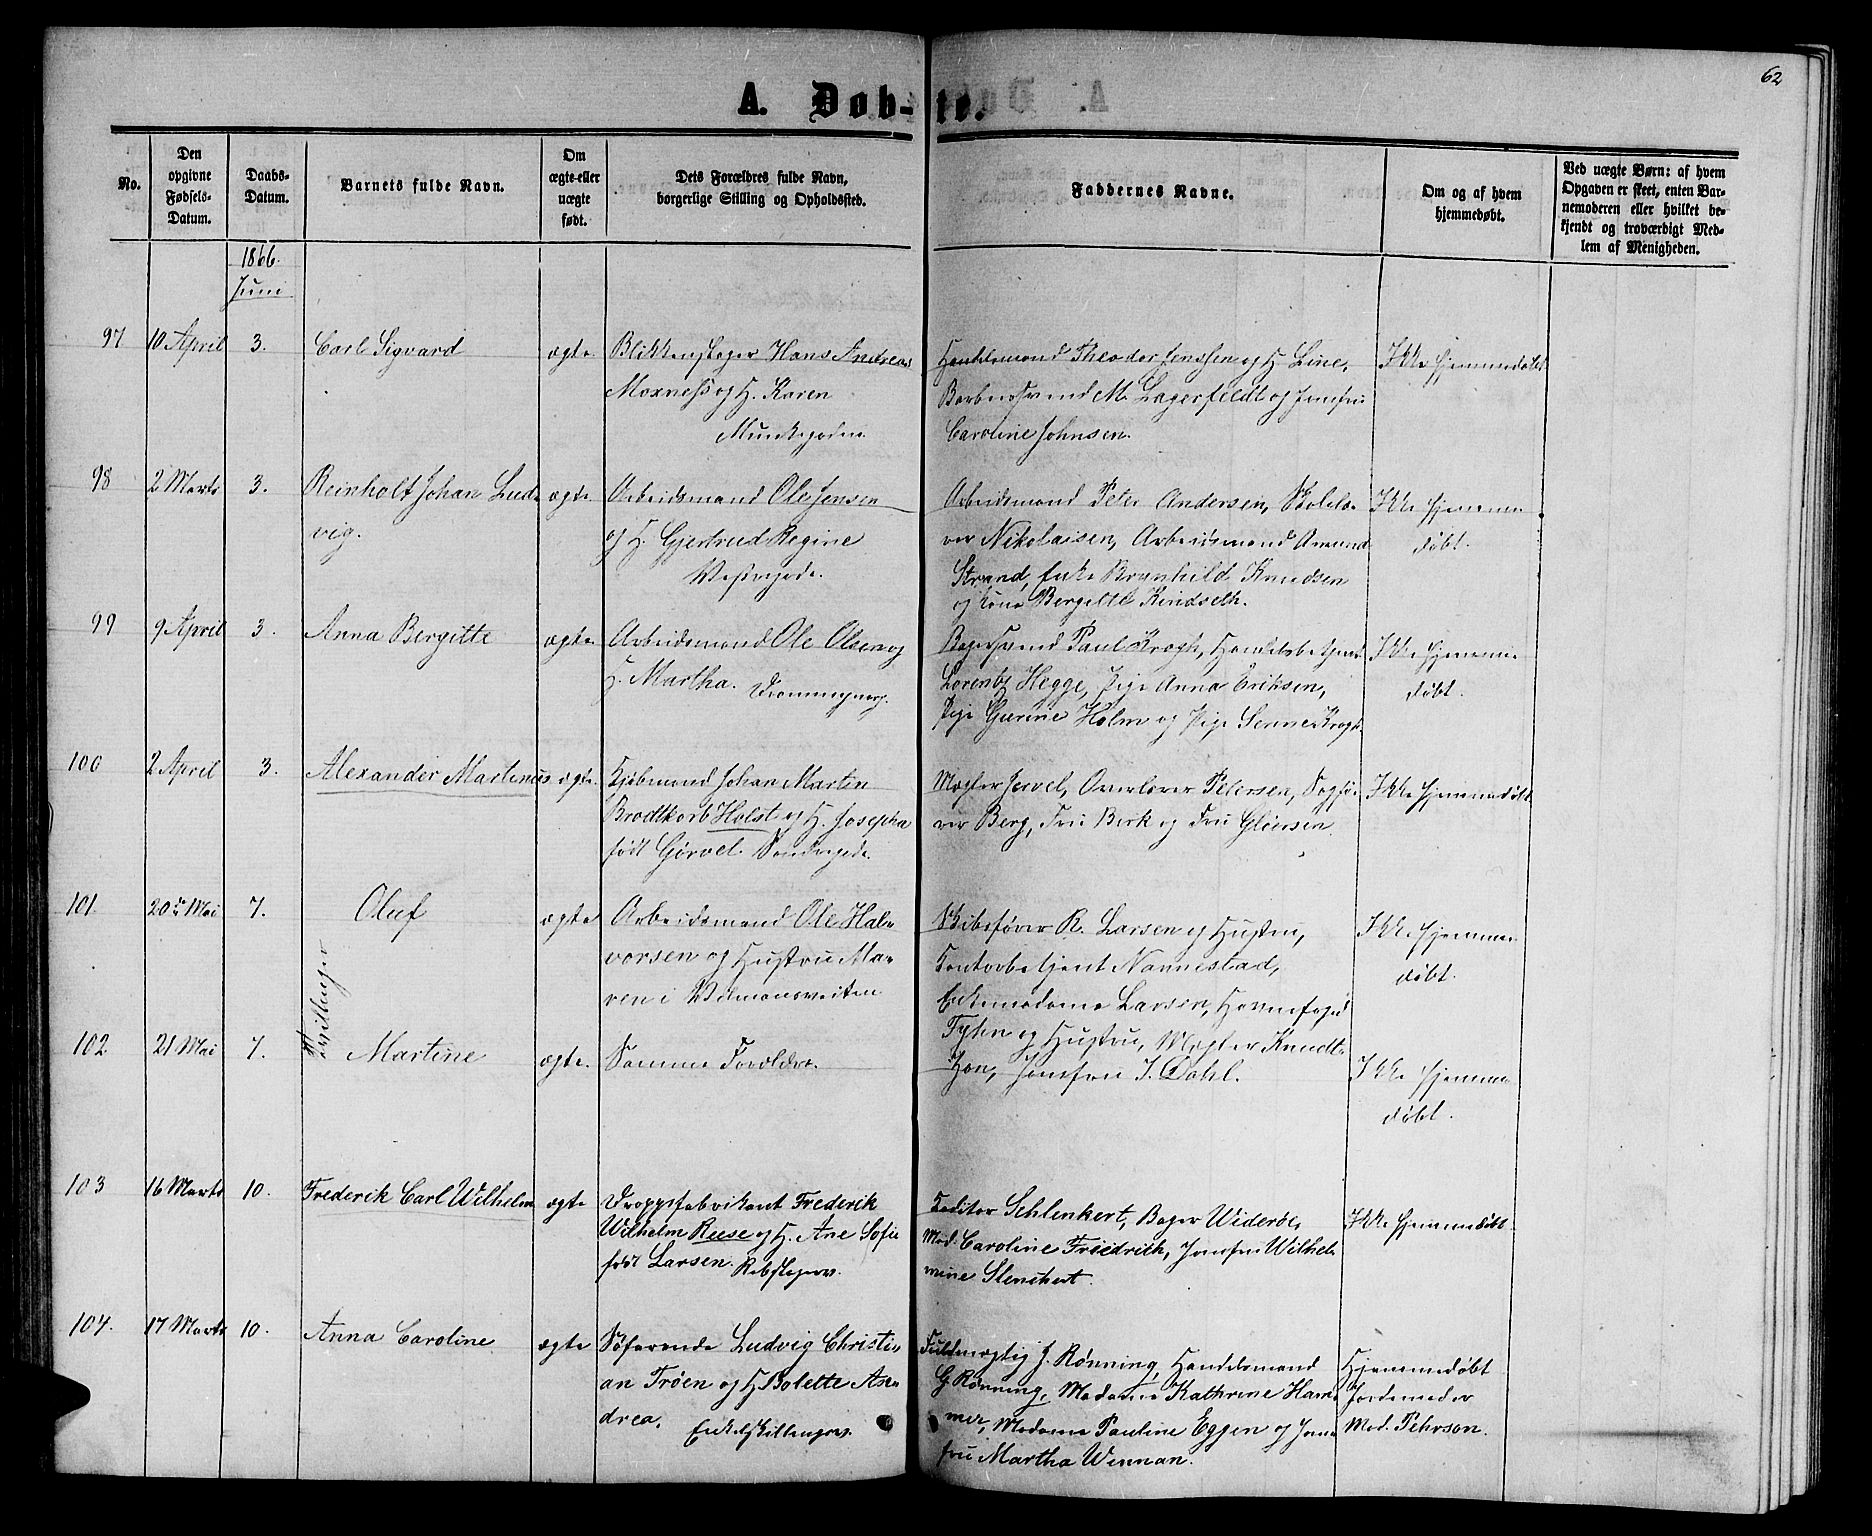 62
A. Døb-te.
No.
Den opgivne Fødsels-Datum.
Daabs-Datum.
Barnets fulde Navn.
Om ægte eller uægte født.
Dets Forældres fulde Navn, borgerlige Stilling og Opholdssted.
Faddernes Navne.
Om og af hvem hjemmedøbt.
Ved uægte Børn: af hvem Opgaven er skeet, enten Barnemoderen eller hvilket bekjendt og troværdigt Medlem af Menigheden.
1866.
Juni
97 10 April 3. Carl Sigvard ægte Blikkenslager Hans Andreas
Moxness og H. Karen
Munkegaden.
Handelsmand Theodor Jenssen og H. Line,
Barbersvend M. Lagerfeldt og Jomfru
Caroline Johnsen.
Ikke hjemmedøbt
98 2 Marts 3. Reinholt Johan Lud-
vig.
ægte Arbeidsmand Ole Jensen
og H. Gjertrud Regine
Vestregade.
Arbeidsmand Peter Andersen, Skolelæ-
rer Nikolaisen, Arbeidsmand Amund
Strand, Enke Brynhild Knudsen
og Kone Bergitte Kindseth.
Ikke hjemme-
døbt.
99 9 April 3. Anna Bergitte ægte Arbeidsmand Ole Olsen og
H. Martha.
Bagersvend Paul Krogh, Handelsbetjent
Lorentz Hegge, Pige Anna Eriksen,
Pige Gurine Holm og Pige Krogh.
Ikke hjemme-
døbt.
100 2 April 3. Alexander Martinus ægte Kjøbmand Johan Martin
Brodtkorb Holst og H. Josepha
født Gørvel. Søndregade.
Mægler Jervel, Overlærer Petersen, Sagfø-
rer Berg, Fru Birk og Fru
Ikke hjemmedøbt
101 20de Mai 7. Oluf ægte Arbeidsmand Ole Hal-
vorsen og Hustru Ma-
ren i
Skibsfører R. Larsen og Hustru,
Contorbetjent Nannestad,
Enkemadame Larsen, Havnefoged
Ikke hjemme-
døbt.
Tvillinger
102 21 Mai 7. Martine ægte. Samme Forældre.
og Hustru, Mægler Knudt-
zon, Jomfru J. Dahl.
Ikke hjemme-
døbt.
103 16 Marts 10. Frederik Carl Wilhelm ægte Fredrik
Wilhelm Reese og H. Ane Sofie
født Larsen.
Conditor Schlenkert, Bager Widerøe,
Mad. Caroline Friedrith, Jomfru Wilhel-
mine
Ikke hjemmedøbt
104. 17 Marts 10. Anna Caroline. ægte Søfarende Ludvig Christi-
an Trøen og H Bolette An-
drea.
Enkelskillingsv.
Fuldmægtig J. Rønning, Handelsmand
G Rønning, Madame Kathrine Ham-
mer, Madame Pauline Eggen og Jom-
fru Martha Wennan.
Hjemmedøbt
af Jordemoder
Mad. Pehrson.